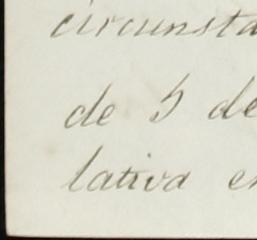 circunsta
de 5 de
lativa en